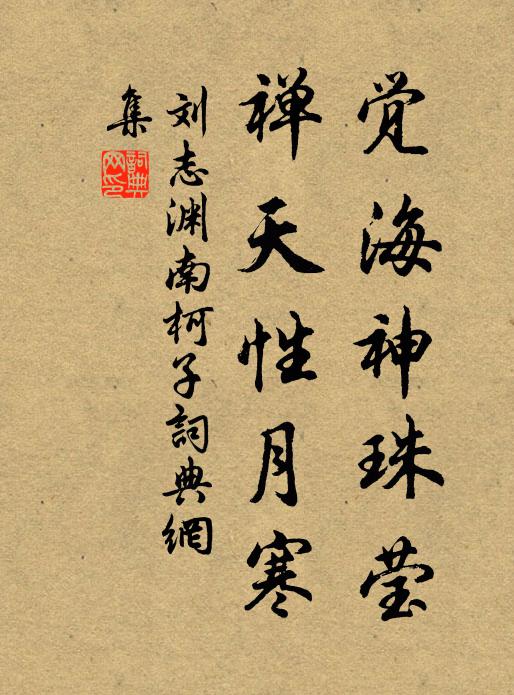 觉海神珠莹
禅天性月寒
刘志渊南柯子詞典網
集
詞典网印